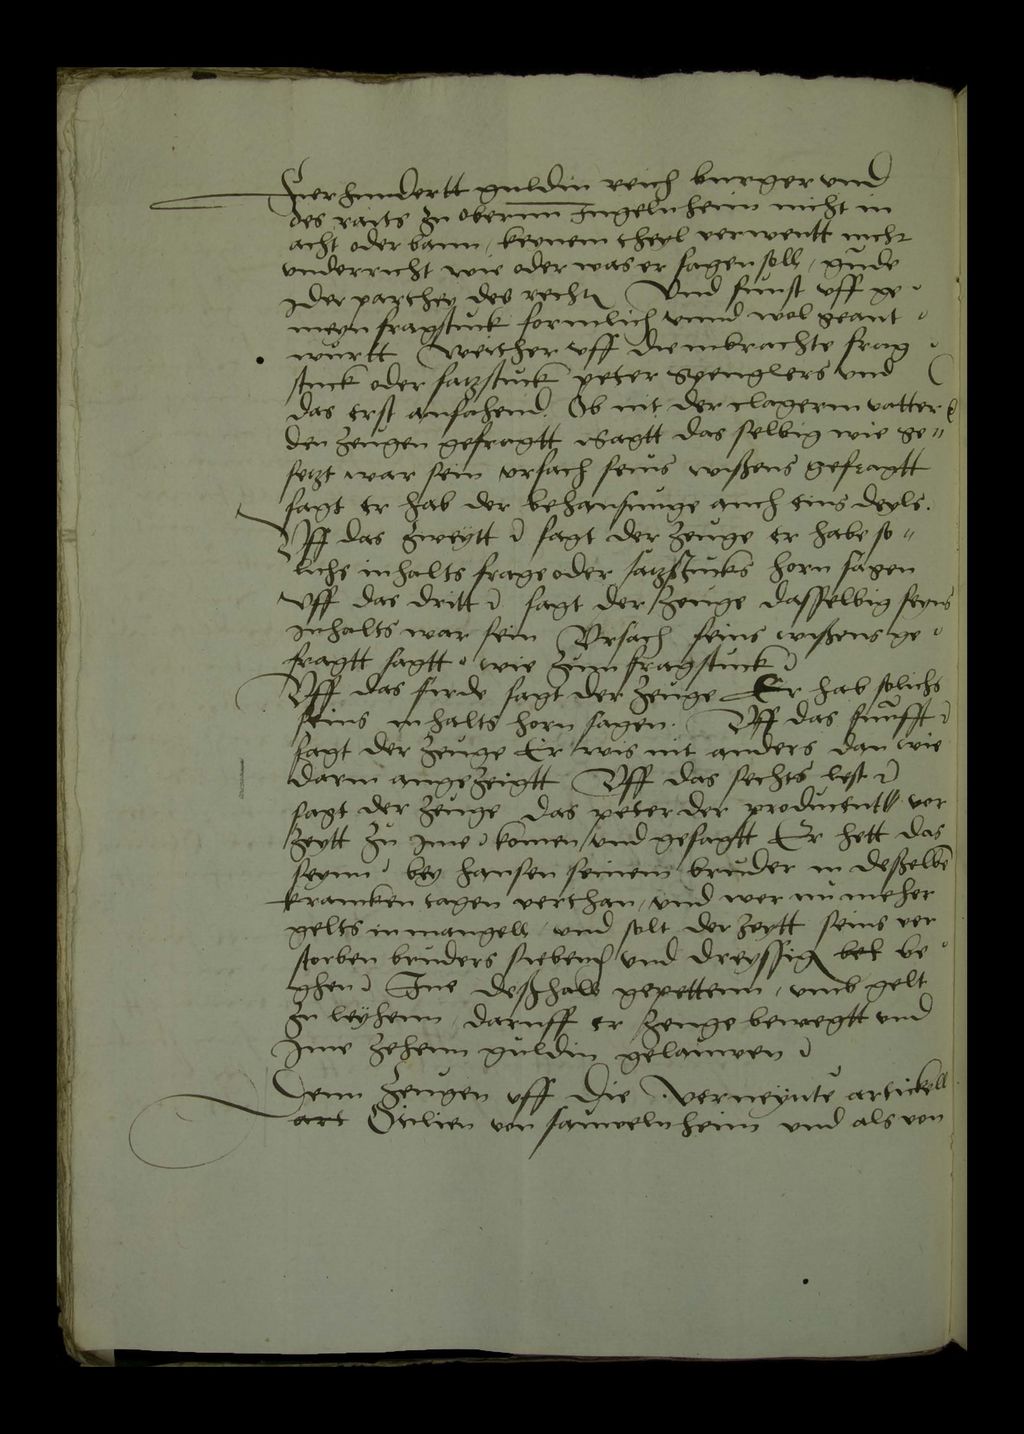 Fierhundertt guldin reich burger und
des raits zu obernn Ingelnheim nicht in
acht oder bann, keynem theyl verwentt nicht
underricht wie oder was er sagen soll, gude
Ider parthey des rechtn Und sunst uff ge-
meyn fragstuck formlich unnd wol geant-
wurtt Weither uff die inbrachte frag-
stuck oder satzstuck peter Spenglers und
das erst anfahend. Ob nit der clagerin vatter
den zeugen gefragtt Sagtt das selbig wie ge"
setzt war sein ursach seins wißens gefragtt
sagt er hab der behausunge auch eins deyls.
Uff das zweytt sagt der zeuge er habe so"
lichs inhalts frage oder satzstucks horn sagen
Uff das dritt sagt der zeuge dasselbig seyns
Inhalts war sein Ursach seins wißens ge-
fragtt sagtt wie zum fragstuck
Uff das firde sagt der zeuge Er hab solichs
seins inhalts horn sagen. Uff das funfft
sagt der zeuge Er wis nit anders dan wie
darin angezeigtt Uff das sechts lest
sagt der zeuge das peter der producent vor
zeytt zu ime komen und gesagtt Er hett das
seynn bey hansen seinem bruder in deßelbe
krancken tagen verthan, und wer nu meher
gelts in mangell, und solt der zeytt seins ver
storben bruders siebend und dreyssig bet be-
ghen Ine deßhalb gepettenn, umb gelt
zu leyhenn, daruff er zeuge bewegtt und
Ime zehenn guldin geluwen
Denn zeugen uff die verneynte artickell
art Otilien von sauwelnheim und als von